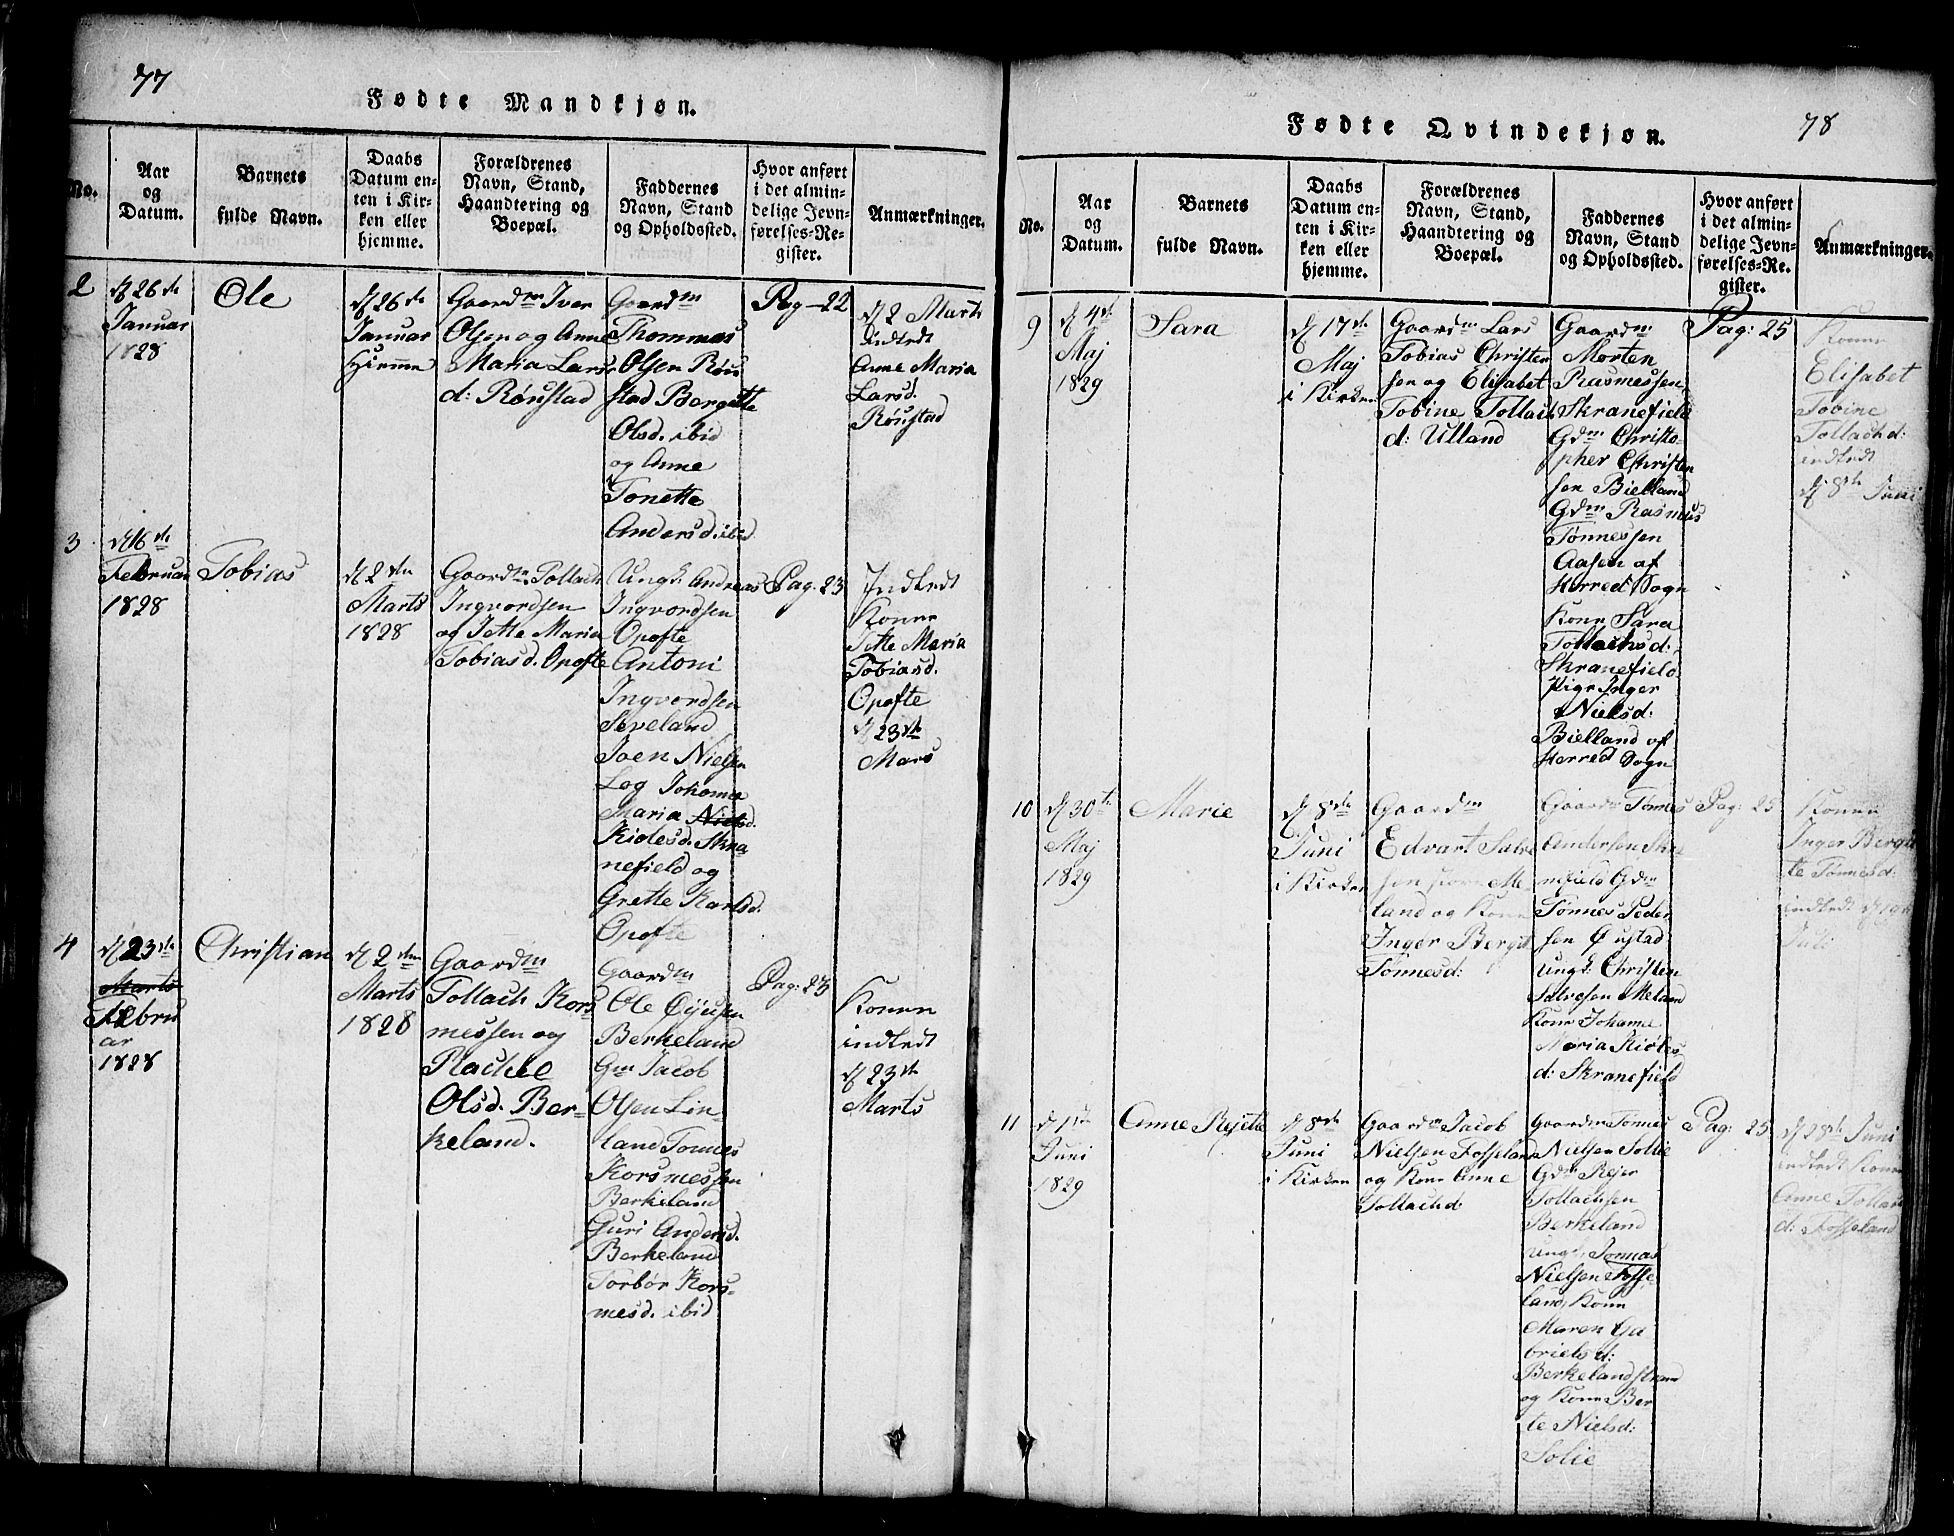 77
Fødte Mandkjøn.
No.
Aar
og
Datum.
Barnets
fulde Navn.
Daabs
Datum en-
ten i Kir-
ken eller
hjemme.
Forældrenes
Navn, Stand,
Haandtering og
Boepæl.
Faddernes
Navn, Stand
og Opholdssted.
Hvor anført
i det almin-
delige Jevn-
førelses-Re-
gister.
Anmærkninger.
2
d 26de
Januar
1828
Ole
d 26de
Januar
Hiemme
Gaardm Iver
Olsen og Anne
Maria Lars
d: Rørstad
Gaardm
Thommas
Olsen Røn
stad Bergitte
Olsd. ibid
og Anne
Tonette
Andersd. ibd
Pag-22
d 2 Marts
Indledt
Anne Maria
Larsd.
Rørstad
3
d 16de
Februar
1828
Tobias
d 2den
Marts
1828
Gaardm Tollach
Ingvordsen
og Jette Maria
Tobiasd. Opofte
Ungk: Andreas
Ingvordsen
Opofte
Antoni
Ingvordsen
Seveland
Joen Nielsen
Log Johanne
Maria Nielsd.
Kiolesd. Skra
nefield og
Grette Karlsd.
Opofte
Pag. 23
Indledt
Konen
Jette Maria
Tobiasd.
Opofte
d 23de
Mars
4
d 23de
Marts
Febru
ar
1828
Christian
d 2den
Marts
1828
Gaardm
Tollach Kors
messen og
Rachel
Olsd. Ber-
keland.
Gaardm
Ole Øjusen
Berkeland
Gm Jacob
Olsen Lin
land Tonnes
Korsmessen
Berkeland
Guri Andersd.
Berkeland
Torbor Kors-
mesd. ibid
Pag: 23
Konen
indledt
d 23de
Marts
78
Fødte Qvindekjøn.
No.
Aar
og
Datum.
Barnets
fulde Navn.
Daabs
Datum en-
ten i Kir-
ken eller
hjemme.
Forældrenes
Navn, Stand,
Haandtering og
Boepæl.
Faddernes
Navn, Stand
og Opholdssted.
Hvor anført
i det almin-
delige Jevn-
førelses-Re-
gister.
Anmærkninger.
9
d 4de
Maj
1829
Sara
d 17de
Maj
i Kirken
Gaardm Lars
Tobias Christen
sen og Elisabet
Tobine Tollach
d: Ulland
Gaardm
Morten
Rasmessen
Skranefield
Gdm Christo-
pher Christen
sen Bielland
Gdm Rasmus
Tønnessen
Aasen af
Herred Sogn
Kone Sara
Tollachsd:
Skranefield
Pige Inger
Nielsd:
Bielland af
Herred Sogn
Pag: 25
Konen
Elisabet
Tobine
Tollachd:
indledt
d 8de Juni
10
d 30te
Maj
1829
Marie
d 8de
Juni
i Kirken
Gaardm
Edvart Salve
sen Me-
land og Kone
Inger Bergit
Tønnesd:
Gaardm Tønnes
Andersen Skra
nefield Gdm
Tønnes Peder
sen Øystad
Ungk: Christen
Salvesen Meland
Kone Johanne
Maria Kioles
d: Skranefield
Pag: 25
Konen
Inger Bergit
te Tønnesd:
indledt d 19de
Juli
11
d 1ste
Juni
1829
Anne Rejette
d 8de
Juni
i Kirken
Gaardm Jacob
Nielsen Fosseland
og Kone Anne
Tollachd
Gaardm Tønnes
Nielsen Solie
Gdm Rejer
Tollachsen
Berkeland
Ungk: Tonnas
Nielsen Fosse
land, Kone
Maren Ga
brielsd:
Berkeland
og Kone Ber
te Nielsd:
Solie
Pag: 25
d 28de Juni
indledt Konen
Anne Tollach
d: Fosseland